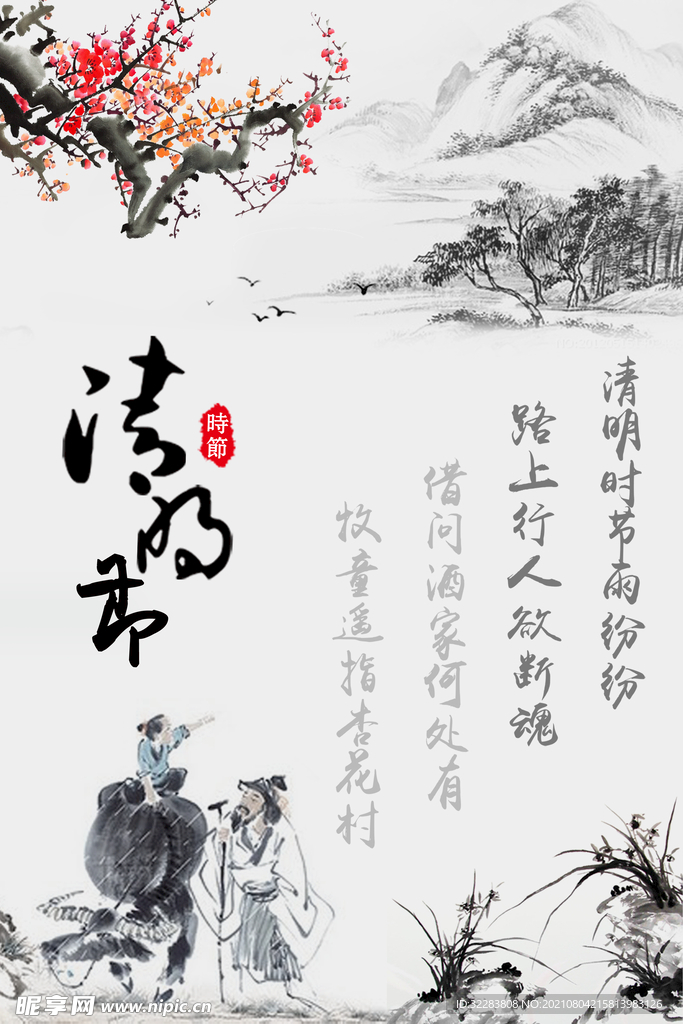 清明节
時節
清明时节雨纷纷
路上行人欲断魂
借问酒家何处有
牧童遥指杏花村
昵享网 www.nipic.cn
ID:32283808 NO:20210804215813983126